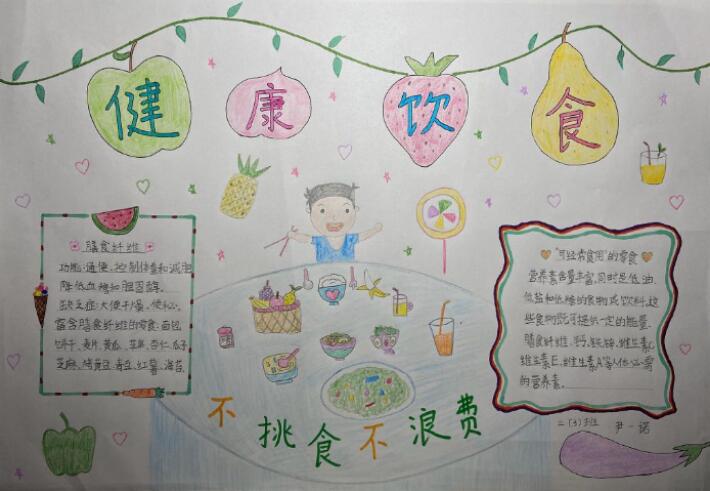 健康饮食
膳食纤维
功能:通便、控制体重和减肥
降低血糖和胆固醇。
缺乏症:大便干燥、便秘。
富含膳食纤维的零食:面包
饼干、麦片、黄瓜、苹果、杏仁、瓜子
芝麻、烤黄豆、青豆、红薯、海苔
“可经常食用”的零食
营养素含量丰富,同时是低油、
低盐和低糖的食物或饮料,这
些食物既可提供一定的能量、
膳食纤维、钙、铁、锌、维生素C
维生素E、维生素A等人体必需
的营养素。
不挑食不浪费
二(3)班 尹一诺